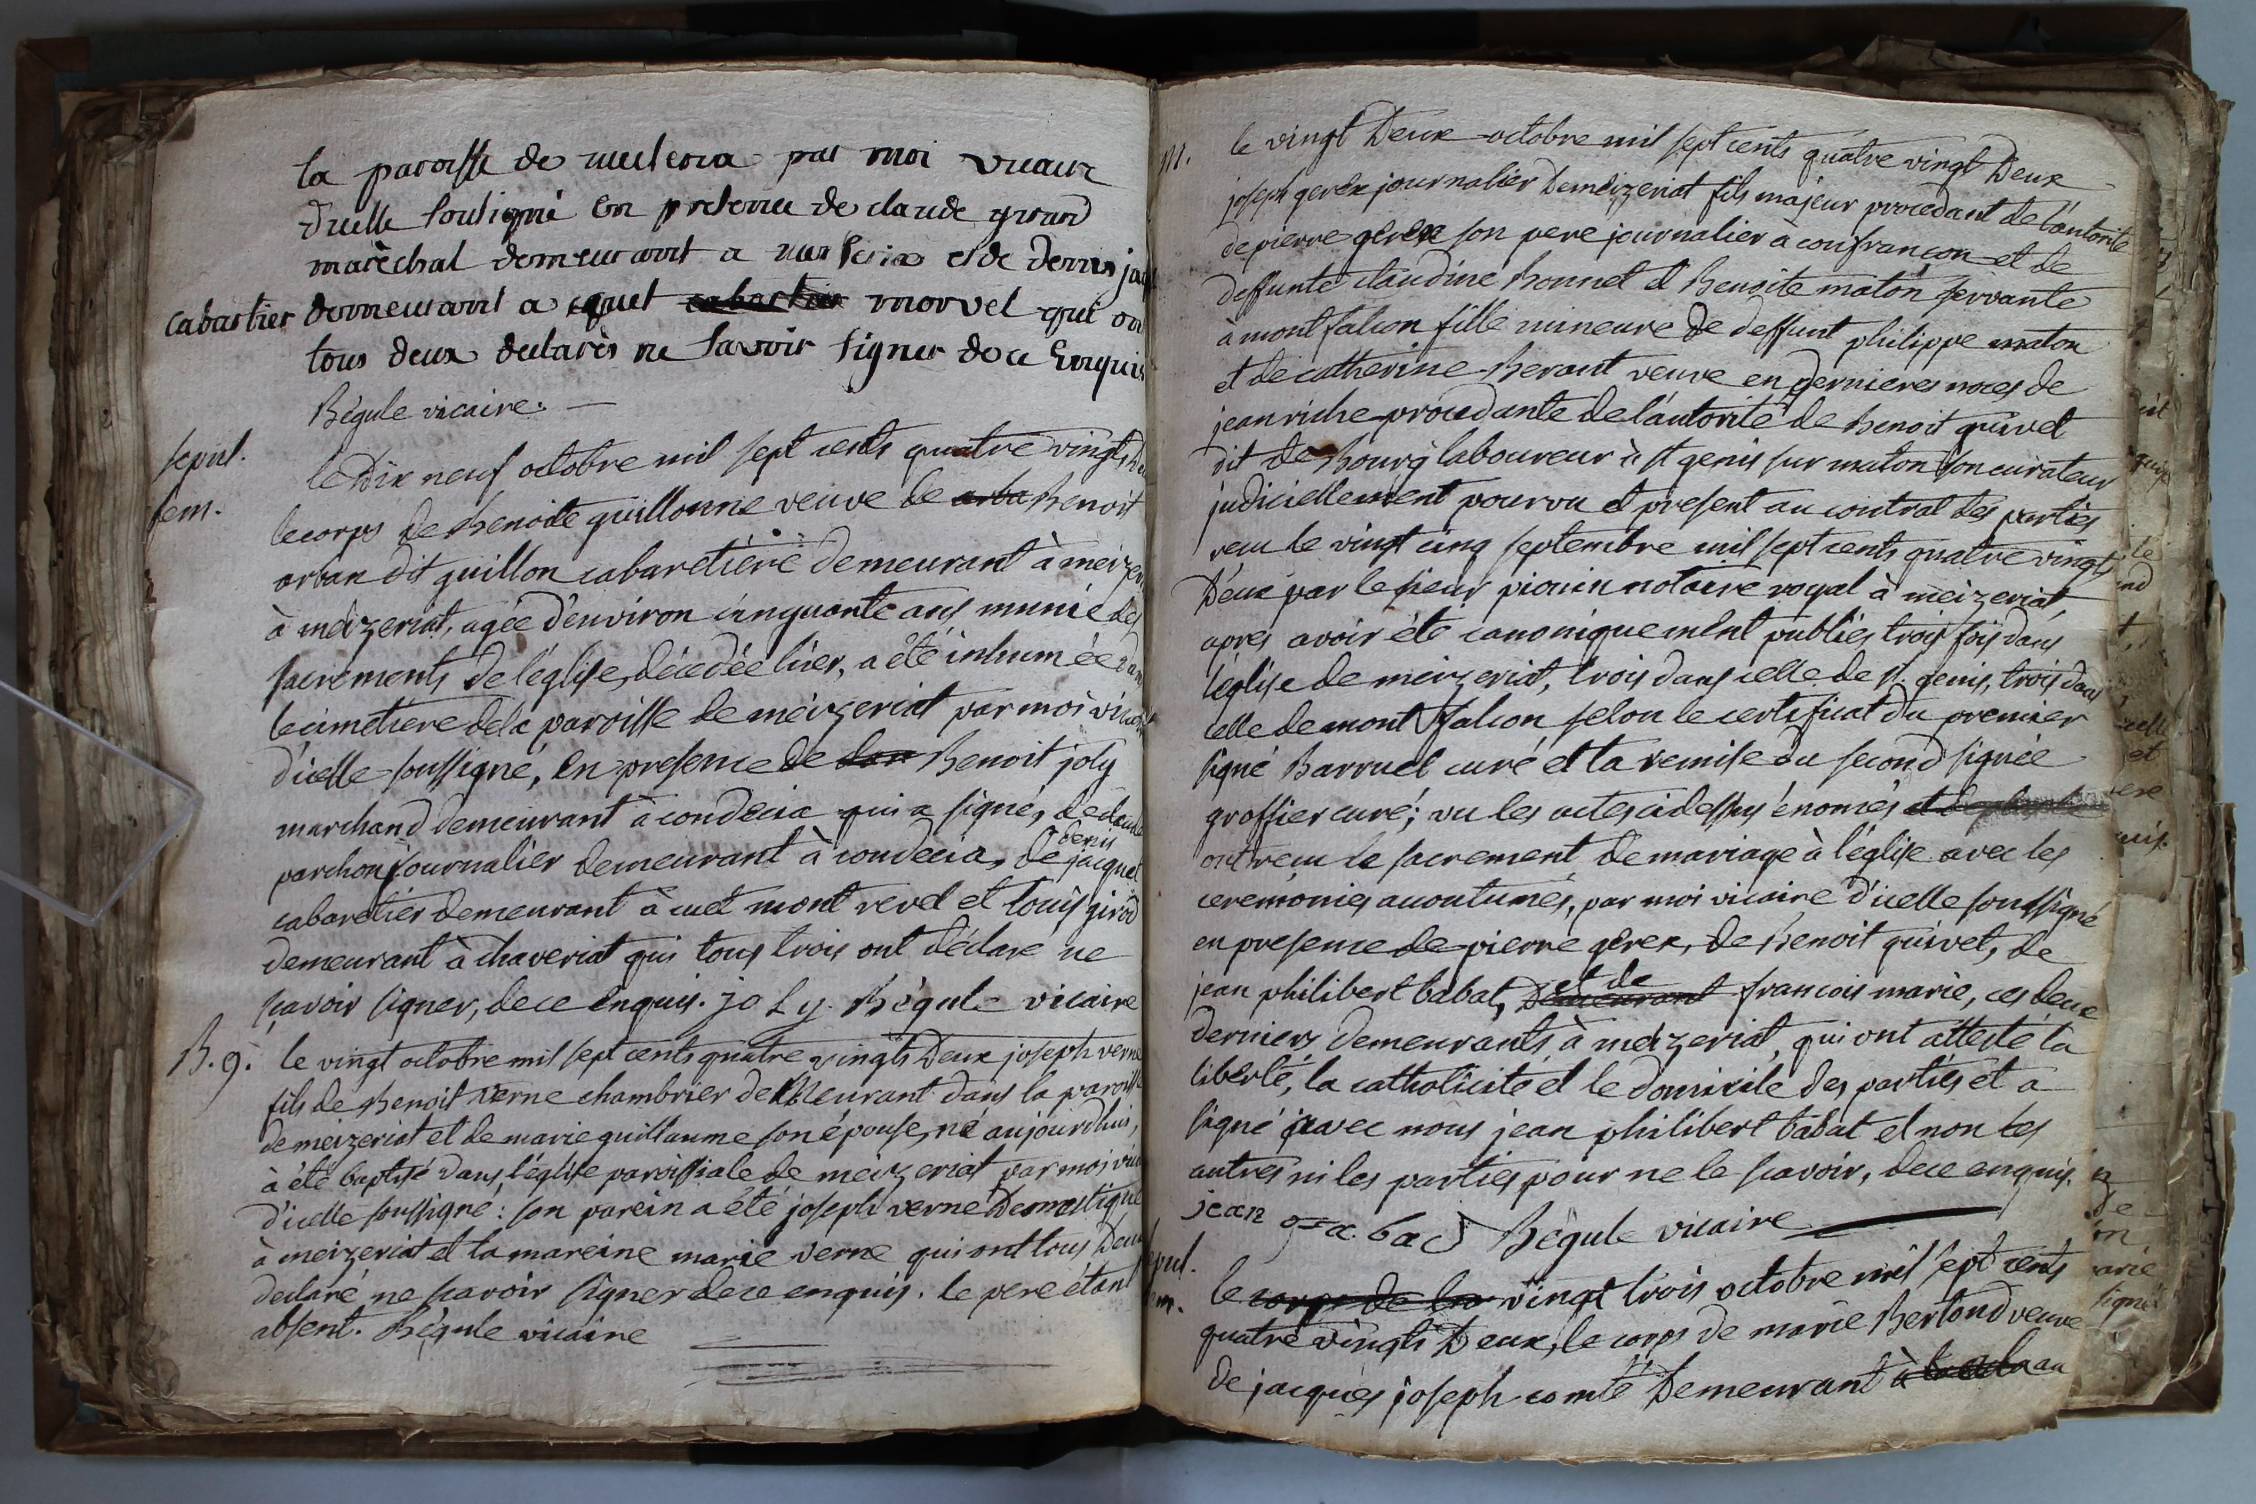 la paroisse de par moi vicaire
d'icelle sousigné en presence de claude
marèchal demeurant a et de denis
cabartier demeurant a cuet morvel qui on
tous deux declarès ne savoir signer de ce Enquis
Bégule vicaire.
sepul.
fem.
le Dix neuf octobre mil sept cents quatre vingts
le corps de Benoite guillonne veuve de Benoit
orban dit guillon cabaretiere demeurant à
à meizeriat, agée d'environ cinquante ans, munie des
sacrements de l'église, décedée hier, a été inhumée dans
le cimetiere de la paroisse de meizeriat par moi
d'icelle soussigné, en presence de Benoit joly
marchand demeurant à condecia qui a signé, de
parchon journalier demeurant à condecia, de denis jacquet
cabaretier demeurant à cuet mont revel et louis girod
demeurant à chaveriat qui tous trois ont déclare ne
scavoir signer, de ce enquis. joly. Bégule vicaire
B. g.
le vingt octobre mil sept cents quatre vingts Deux joseph verne
fils de Benoit verne chambrier demeurant dans la paroisse
de meizeriat et de marie guillaume son épouse, né aujourdhui,
à été baptisé dans l'église paroissiale de meizeriat par moi
d'icelle soussigné : son parein a été joseph verne Domestique
à meizeriat et la mareine marie verne qui ont tous Deux
declaré ne scavoir signer de ce enquis. le pere étant
absent. Bégule vicaire
m.
le vingt Deux octobre mil sept cents quatre vingt Deux
joseph gerex journalier De meizeriat fils majeur procedant de l'autorité
de pierre gerex son pere journalier à confrancon et de
deffunte claudine Bonnet et Benoite maton servante
à mont falcon fille mineure de deffunt philippe maton
et de catherine Berant veuve en dernieres noces de
jean riche procedante de l'autorité de Benoit quivet
dit de Bourg laboureur à st genis sur maton son curateur
judiciellement pourvu et present au contrat des parties
recu le vingt cinq septembre mil sept cents quatre vingt
Deux par le sieur notaire royal à meizeriat
apres avoir été canoniquement publiés trois fois dans
l'église de meizeriat, trois dans celle de st. genis, trois dans
celle de mont falcon selon le certificat du premier
signé Barruel curé et la remise du second signée
groffier curé; vu les actes ci dessus énomés
ont recu le sacrement de mariage à l'église avec les
ceremonies acoutumés, par moi vicaire d'icelle soussigné
en presence de pierre gerex, de Benoit quivet, de
jean philibert babat, et de francois marie, ces deux
derniers demeurants à meizeriat, qui ont attesté la
liberté, la catholicité et le domicile des parties et a
signé avec nous jean philibert babat et non les
autres ni les parties pour ne le scavoir, de ce enquis.
jean Bégule vicaire
le vingt trois octobre mil sept cents
quatre vingts Deux, le corps de marie Bertond veuve
de jacques joseph comte Demeurant au